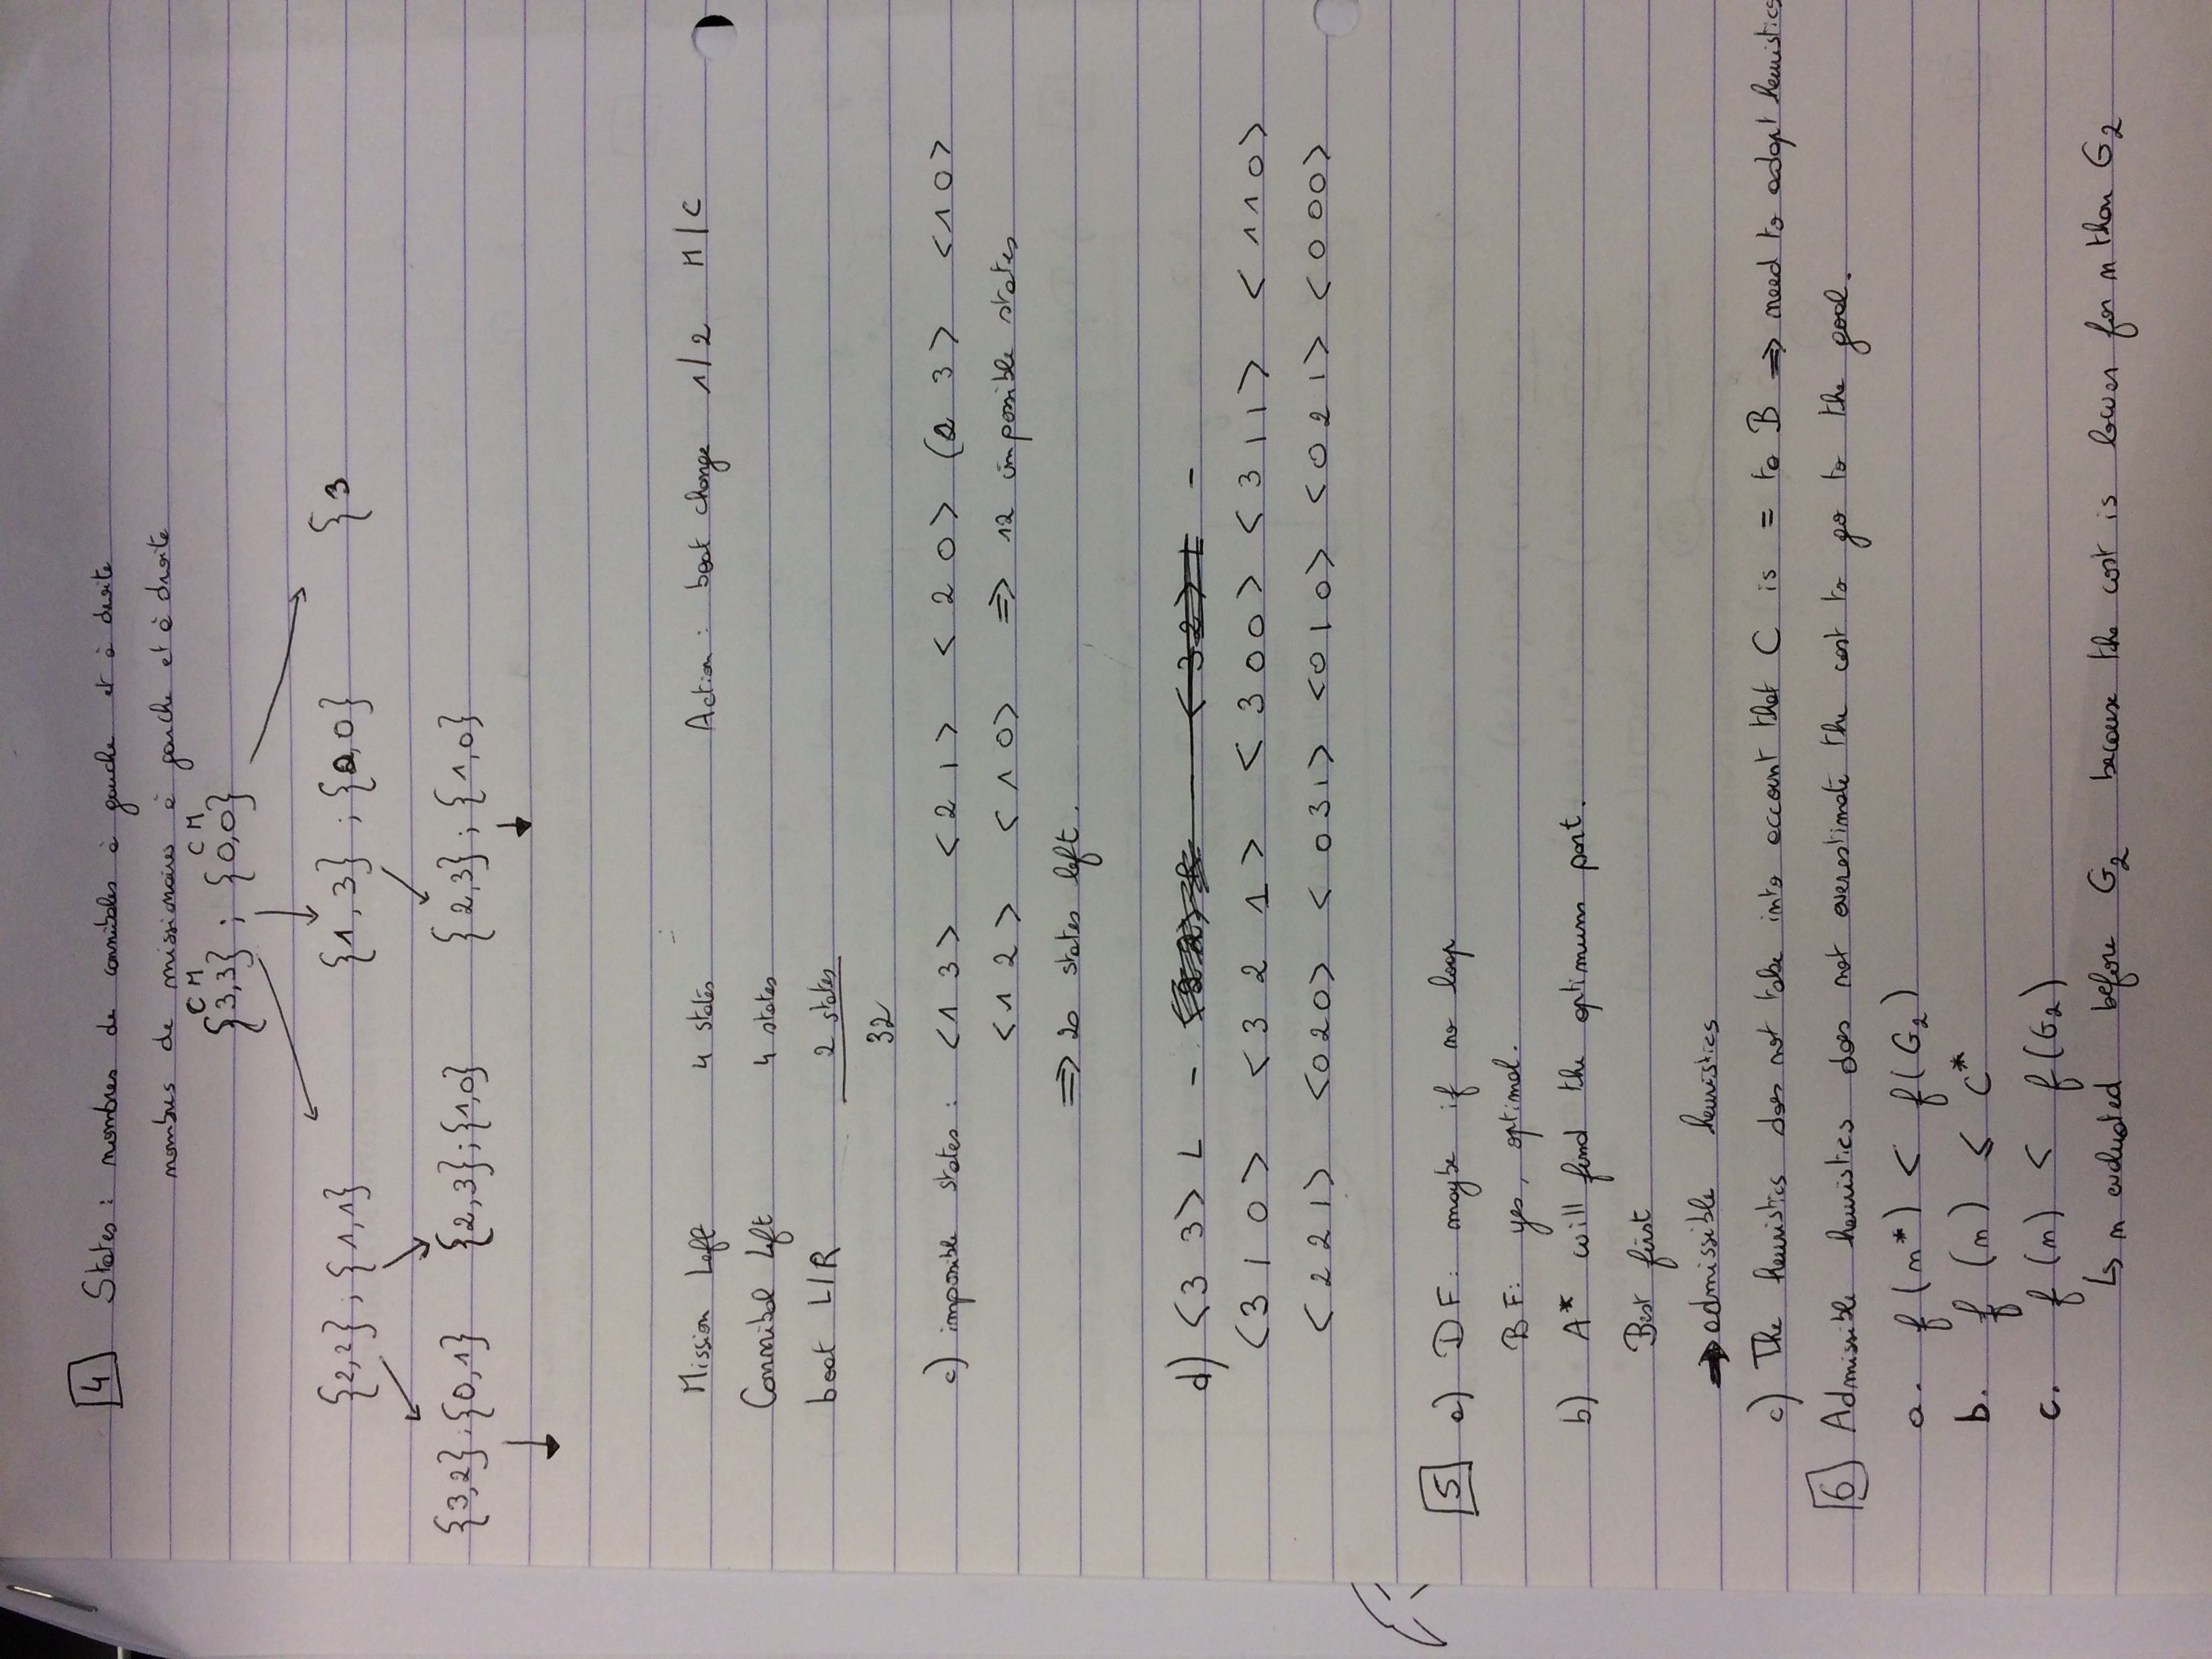 4 States : nombres de cannibales à gauche et à droite
nombres de missionaires à gauche et à droite
C M C M
{3,3} ; {0,0}
{2,2} ; {1,1} {1,3} ; {2,0} {3
{3,2} ; {0,1} {2,3} ; {1,0} {2,3} ; {1,0}
Mission Left 4 states Action : boat change 1/2 M/C
Cannibal Left 4 states
boat L/R 2 states
32
c) impossible states : <1 3> <2 1> <2 0> (2 3> <1 0>
<1 2> <1 0> => 12 impossible states
=> 20 states left.
d) <3 3> L - <3 2> L -
<3 1 0> <3 2 1> <3 0 0> <3 1 1> <1 1 0>
<2 2 1> <0 2 0> <0 3 1> <0 1 0> <0 2 1> <0 0 0>
5 a) DF: maybe if no loop
BF: yes, optimal.
b) A* will find the optimum part.
Best first
→ admissible heuristics
c) The heuristics does not take into account that C is = to B => need to adapt heuristics
6 Admissible heuristics does not overestimate the cost to go to the goal.
a. f(n*) < f(G2)
b. f(n) ≤ C*
c. f(n) < f(G2)
↳ n evaluated before G2 because the cost is lower for n than G2